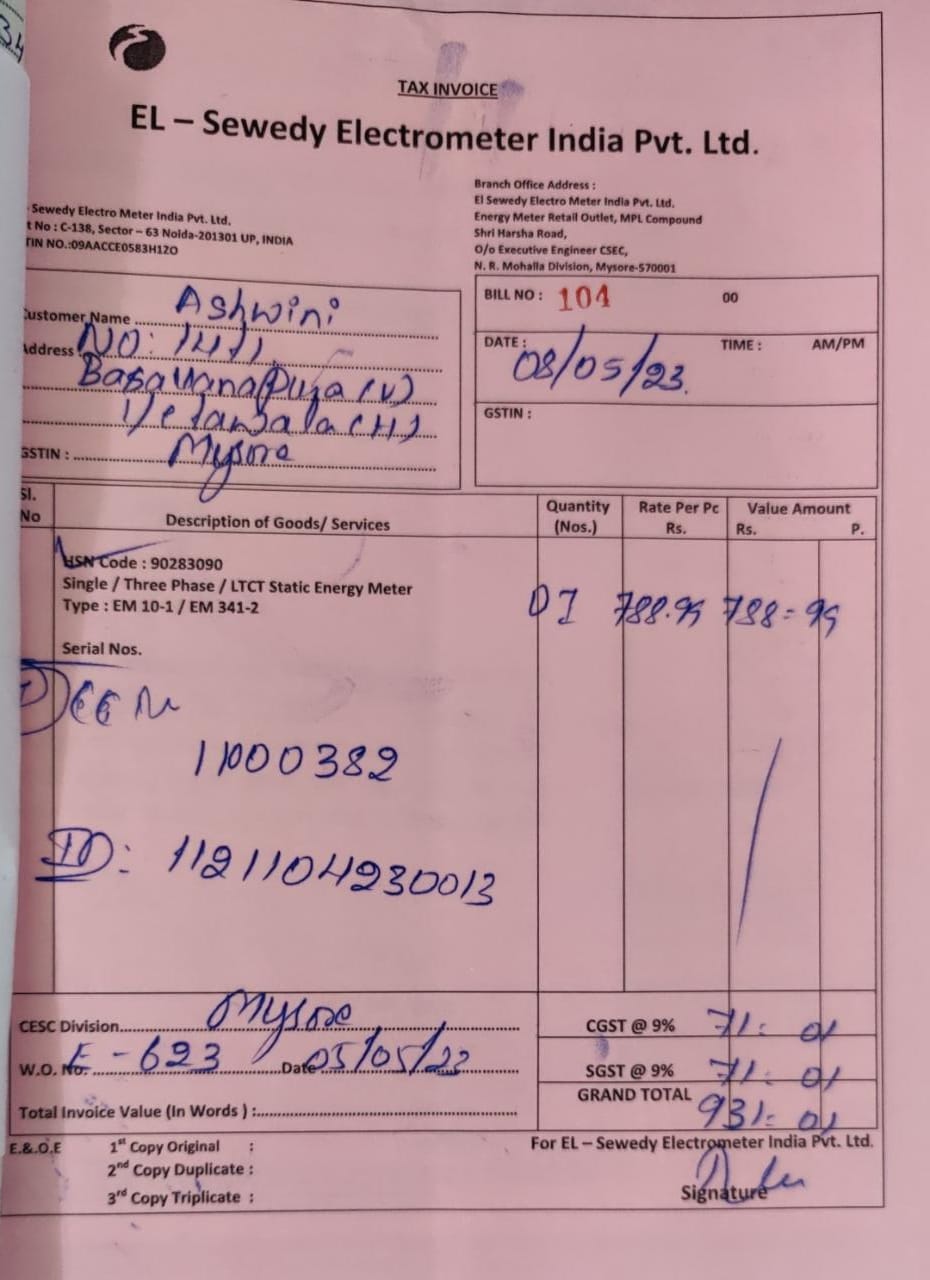 34
TAX INVOICE
EL – Sewedy Electrometer India Pvt. Ltd.
Sewedy Electro Meter India Pvt. Ltd.
t No : C-138, Sector – 63 Noida-201301 UP, INDIA
TIN NO.:09AACCE0583H1ZO
Branch Office Address :
El Sewedy Electro Meter India Pvt. Ltd.
Energy Meter Retail Outlet, MPL Compound
Shri Harsha Road,
O/o Executive Engineer CSEC,
N. R. Mohalla Division, Mysore-570001
Customer Name Ashwini
Address NO: 1471
Basavanapura (V)
(H)
GSTIN : Mysore
BILL NO : 104 00
DATE : 08/05/23. TIME : AM/PM
GSTIN :
Sl. No Description of Goods/ Services Quantity (Nos.) Rate Per Pc Rs. Value Amount Rs. P.
HSN Code : 90283090
Single / Three Phase / LTCT Static Energy Meter
Type : EM 10-1 / EM 341-2 01 788.95 788=95
Serial Nos.
11000382
ID: 1121104230013
CESC Division Mysore
W.O. No. E-623 Date 05/05/23
Total Invoice Value (In Words ) :
CGST @ 9% 71: 01
SGST @ 9% 71: 01
GRAND TOTAL 931= 01
E.&.O.E 1st Copy Original :
2nd Copy Duplicate :
3rd Copy Triplicate :
For EL – Sewedy Electrometer India Pvt. Ltd.
Signature